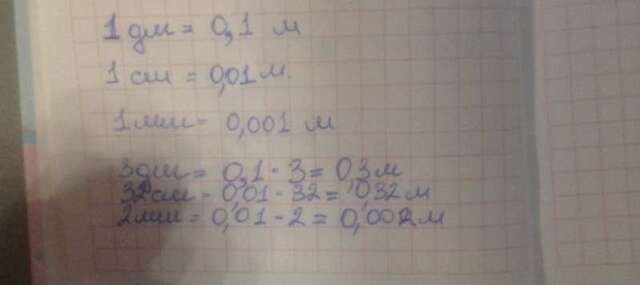 1 дм = 0,1 м
1 см = 0,01 м.
1 мм = 0,001 м
3 дм = 0,1 · 3 = 0,3 м
32 см = 0,01 · 32 = 0,32 м
2 мм = 0,01 · 2 = 0,002 м